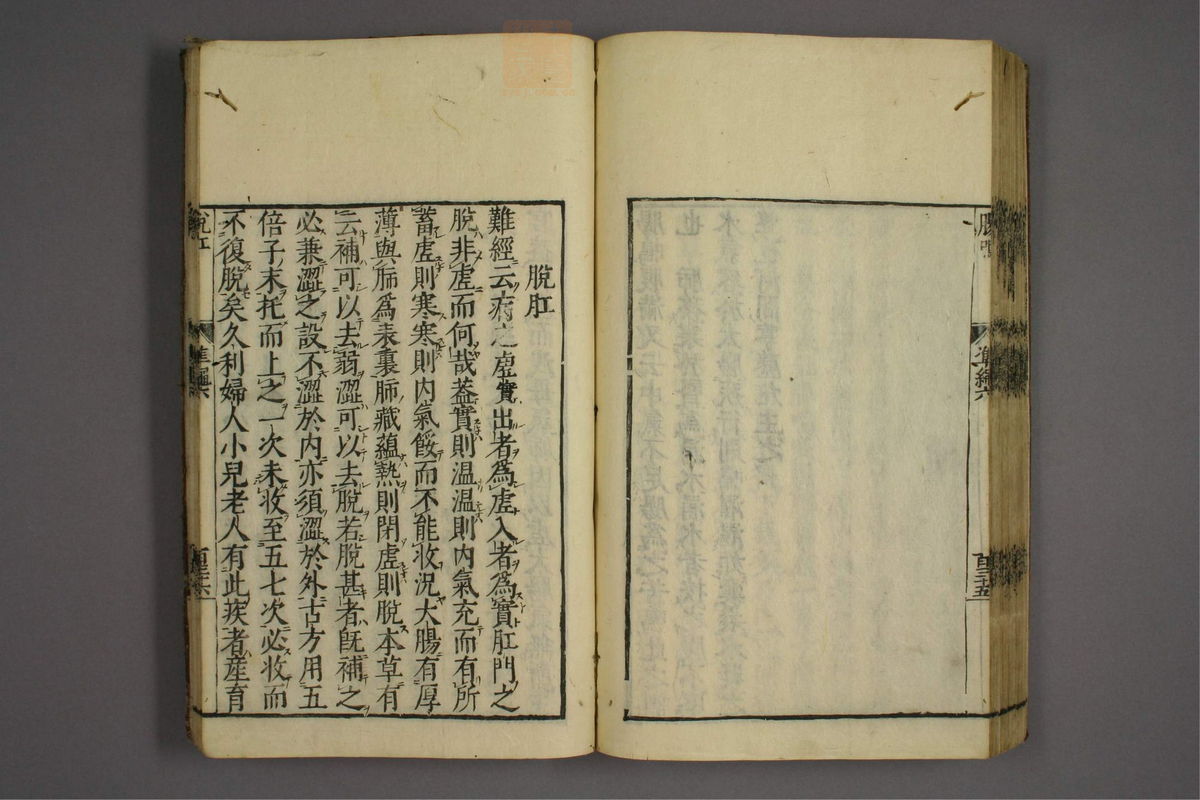 腸鳴
準繩六
百三十五
脫肛
難經云病之虛實出者為虛入者為實肛門之
脫非虛而何哉蓋實則温温則内氣充而有所
蓄虛則寒寒則内氣餒而不能收況大腸有厚
薄與肺為表裏肺藏蘊熱則閉虛則脫本草有
云補可以去弱澀可以去脫若脫甚者旣補之
必兼澀之設不澀於内亦須澀於外古方用五
倍子末托而上之一次未收至五七次必收而
不復脫矣久利婦人小兒老人有此疾者產育
脫肛
準繩六